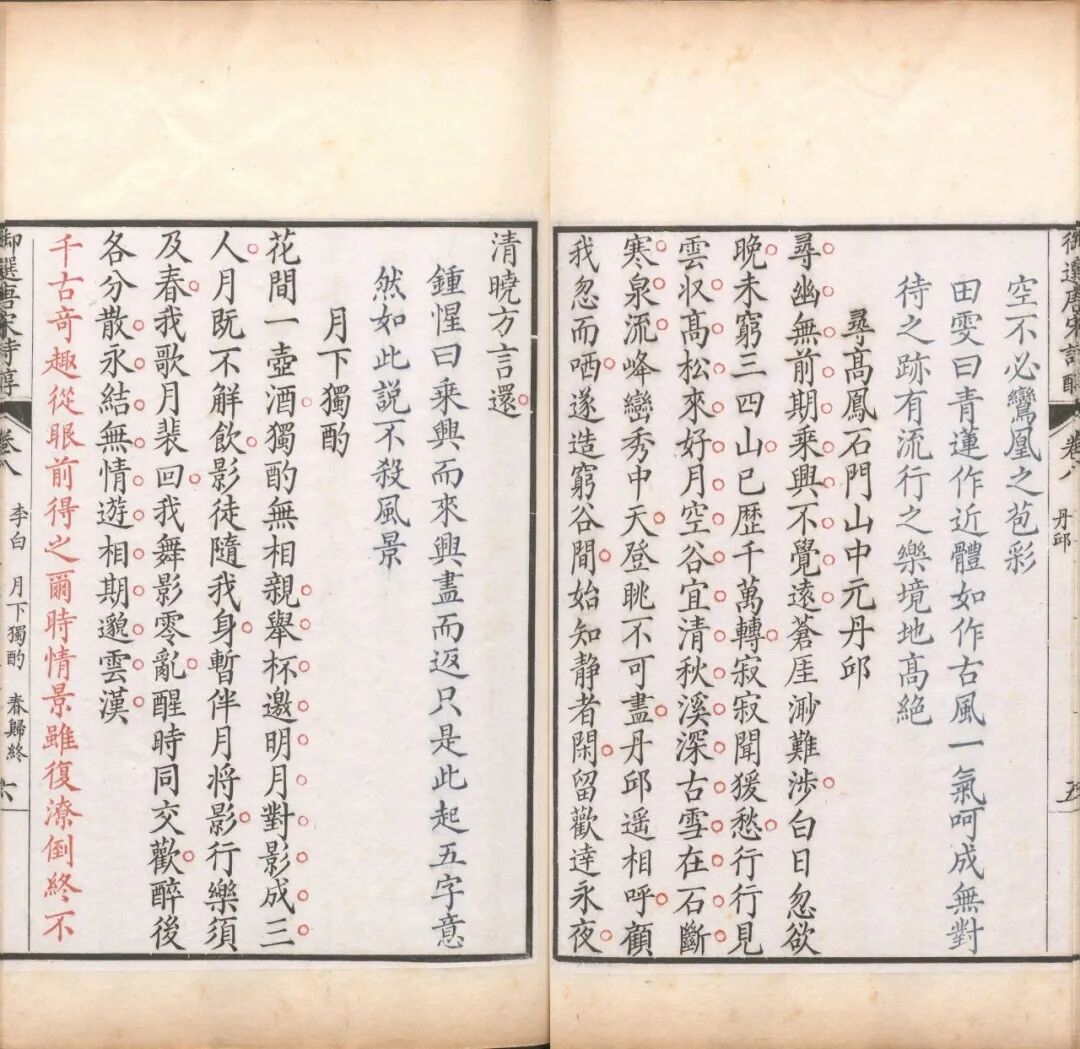 御選唐宋詩醇 卷八 丹邱 五
空不必鸞凰之苞彩
田雯曰青蓮作近體如作古風一氣呵成無對
待之跡有流行之樂境地髙絶
尋髙鳳石門山中元丹邱
尋幽無前期乗興不覺逺蒼厓渺難涉白日忽欲
晚未窮三四山已歴千萬轉寂寂聞猨愁行行見
雲収髙松來好月空谷宜清秋溪深古雪在石斷
寒泉流峰巒秀中天登眺不可盡丹邱遥相呼顧
我忽而哂遂造窮谷間始知静者閑留歡達永夜
清曉方言還
鍾惺曰乗興而來興盡而返只是此起五字意
然如此説不殺風景
月下獨酌
花間一壺酒獨酌無相親舉杯邀明月對影成三
人月既不解飲影徒隨我身暫伴月将影行樂須
及春我歌月裴回我舞影零亂醒時同交歡醉後
各分散永結無情遊相期邈雲漢
千古奇趣從眼前得之爾時情景雖復潦倒終不
御選唐宋詩醇 卷八 李白 月下獨酌 春歸終 六